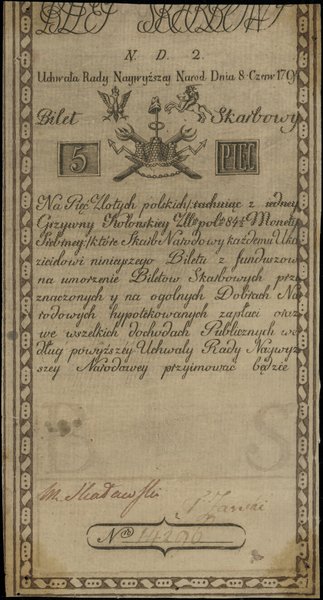 BILET SKARBOWY
N. D. 2.
Uchwała Rady Naywyższey Narod. Dnia 8 Czerw: 1794
Bilet Skarbowy
5 PIĘĆ
Na Pięć Złotych polskich, rachuiąc z iedney
Grzywny Kolonskiey Zło: pol: 84½ Monety
Srebrney, które Skarb Narodowy każdemu Oka
zicielowi ninieyszego Biletu z funduszow
na umorzenie Biletow Skarbowych prze
znaczonych y na ogolnych Dobrach Na
rodowych hypotekowanych zapłaci oraz
we wszelkich dochodach Publicznych we
dług powyższey Uchwały Rady Naywyż
szey Narodowey przyimować będzie
B S
M. Skadawski
Nro 14296